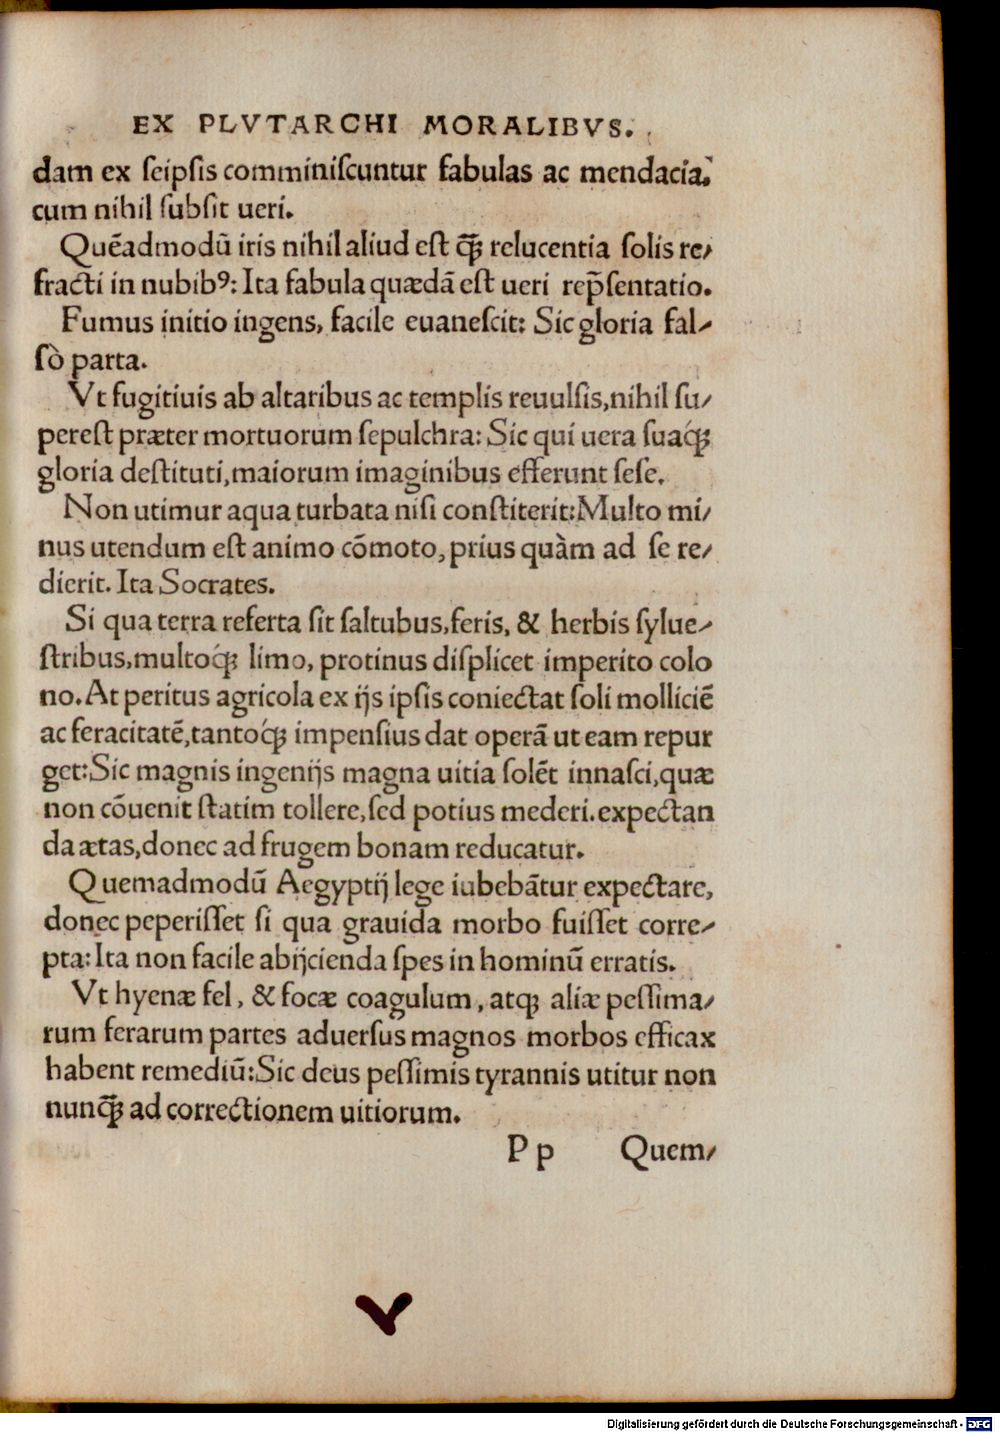 EX PLVTARCHI MORALIBVS.
dam ex ſeipſis comminiſcuntur fabulas ac mendacia,
cum nihil ſubſit ueri.
Quẽadmodũ iris nihil aliud eſt ꝙ̃ relucentia ſolis re/
fracti in nubibꝰ: Ita fabula quædã eſt ueri rep̃ſentatio.
Fumus initio ingens, facile euaneſcit: Sic gloria fal/
ſò parta.
Vt fugitiuis ab altaribus ac templis reuulſis, nihil ſu/
pereſt præter mortuorum ſepulchra: Sic qui uera ſuaq́ꝫ
gloria deſtituti, maiorum imaginibus efferunt ſeſe.
Non utimur aqua turbata niſi conſtiterit: Multo mi/
nus utendum eſt animo cõmoto, prius quàm ad ſe re/
dierit. Ita Socrates.
Si qua terra referta ſit ſaltubus, feris, & herbis ſylue/
ſtribus, multoq́ꝫ limo, protinus diſplicet imperito colo
no. At peritus agricola ex ijs ipſis coniectat ſoli molliciẽ
ac feracitatẽ, tantoq́ꝫ impenſius dat operã ut eam repur
get: Sic magnis ingenijs magna uitia ſolẽt innaſci, quæ
non cõuenit ſtatim tollere, ſed potius mederi. expectan
da ætas, donec ad frugem bonam reducatur.
Quemadmodũ Aegyptij lege iubebãtur expectare,
donec peperiſſet ſi qua grauida morbo fuiſſet corre/
pta: Ita non facile abijcienda ſpes in hominũ erratis.
Vt hyenæ fel, & focæ coagulum, atqꝫ aliæ peſſima/
rum ferarum partes aduerſus magnos morbos efficax
habent remediũ: Sic deus peſſimis tyrannis utitur non
nunꝙ̃ ad correctionem uitiorum.
P p Quem/
Digitalisierung gefördert durch die Deutsche Forschungsgemeinschaft - DFG